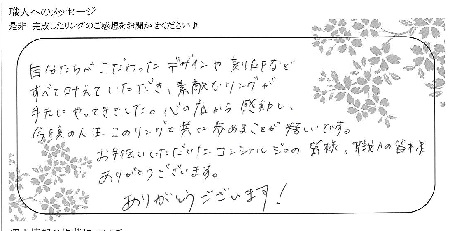 職人へのメッセージ
是非 完成したリングのご感想をお聞かせください♪
自分たちがこだわったデザインや刻印など
すべて叶えていただき、素敵なリングが
手元にやってきました。心の底から感動し、
今後の人生、このリングと共に歩めることが嬉しいです。
お手伝いしていただいたコンシェルジュの皆様、職人の皆様
ありがとうございます。
ありがとうございます!